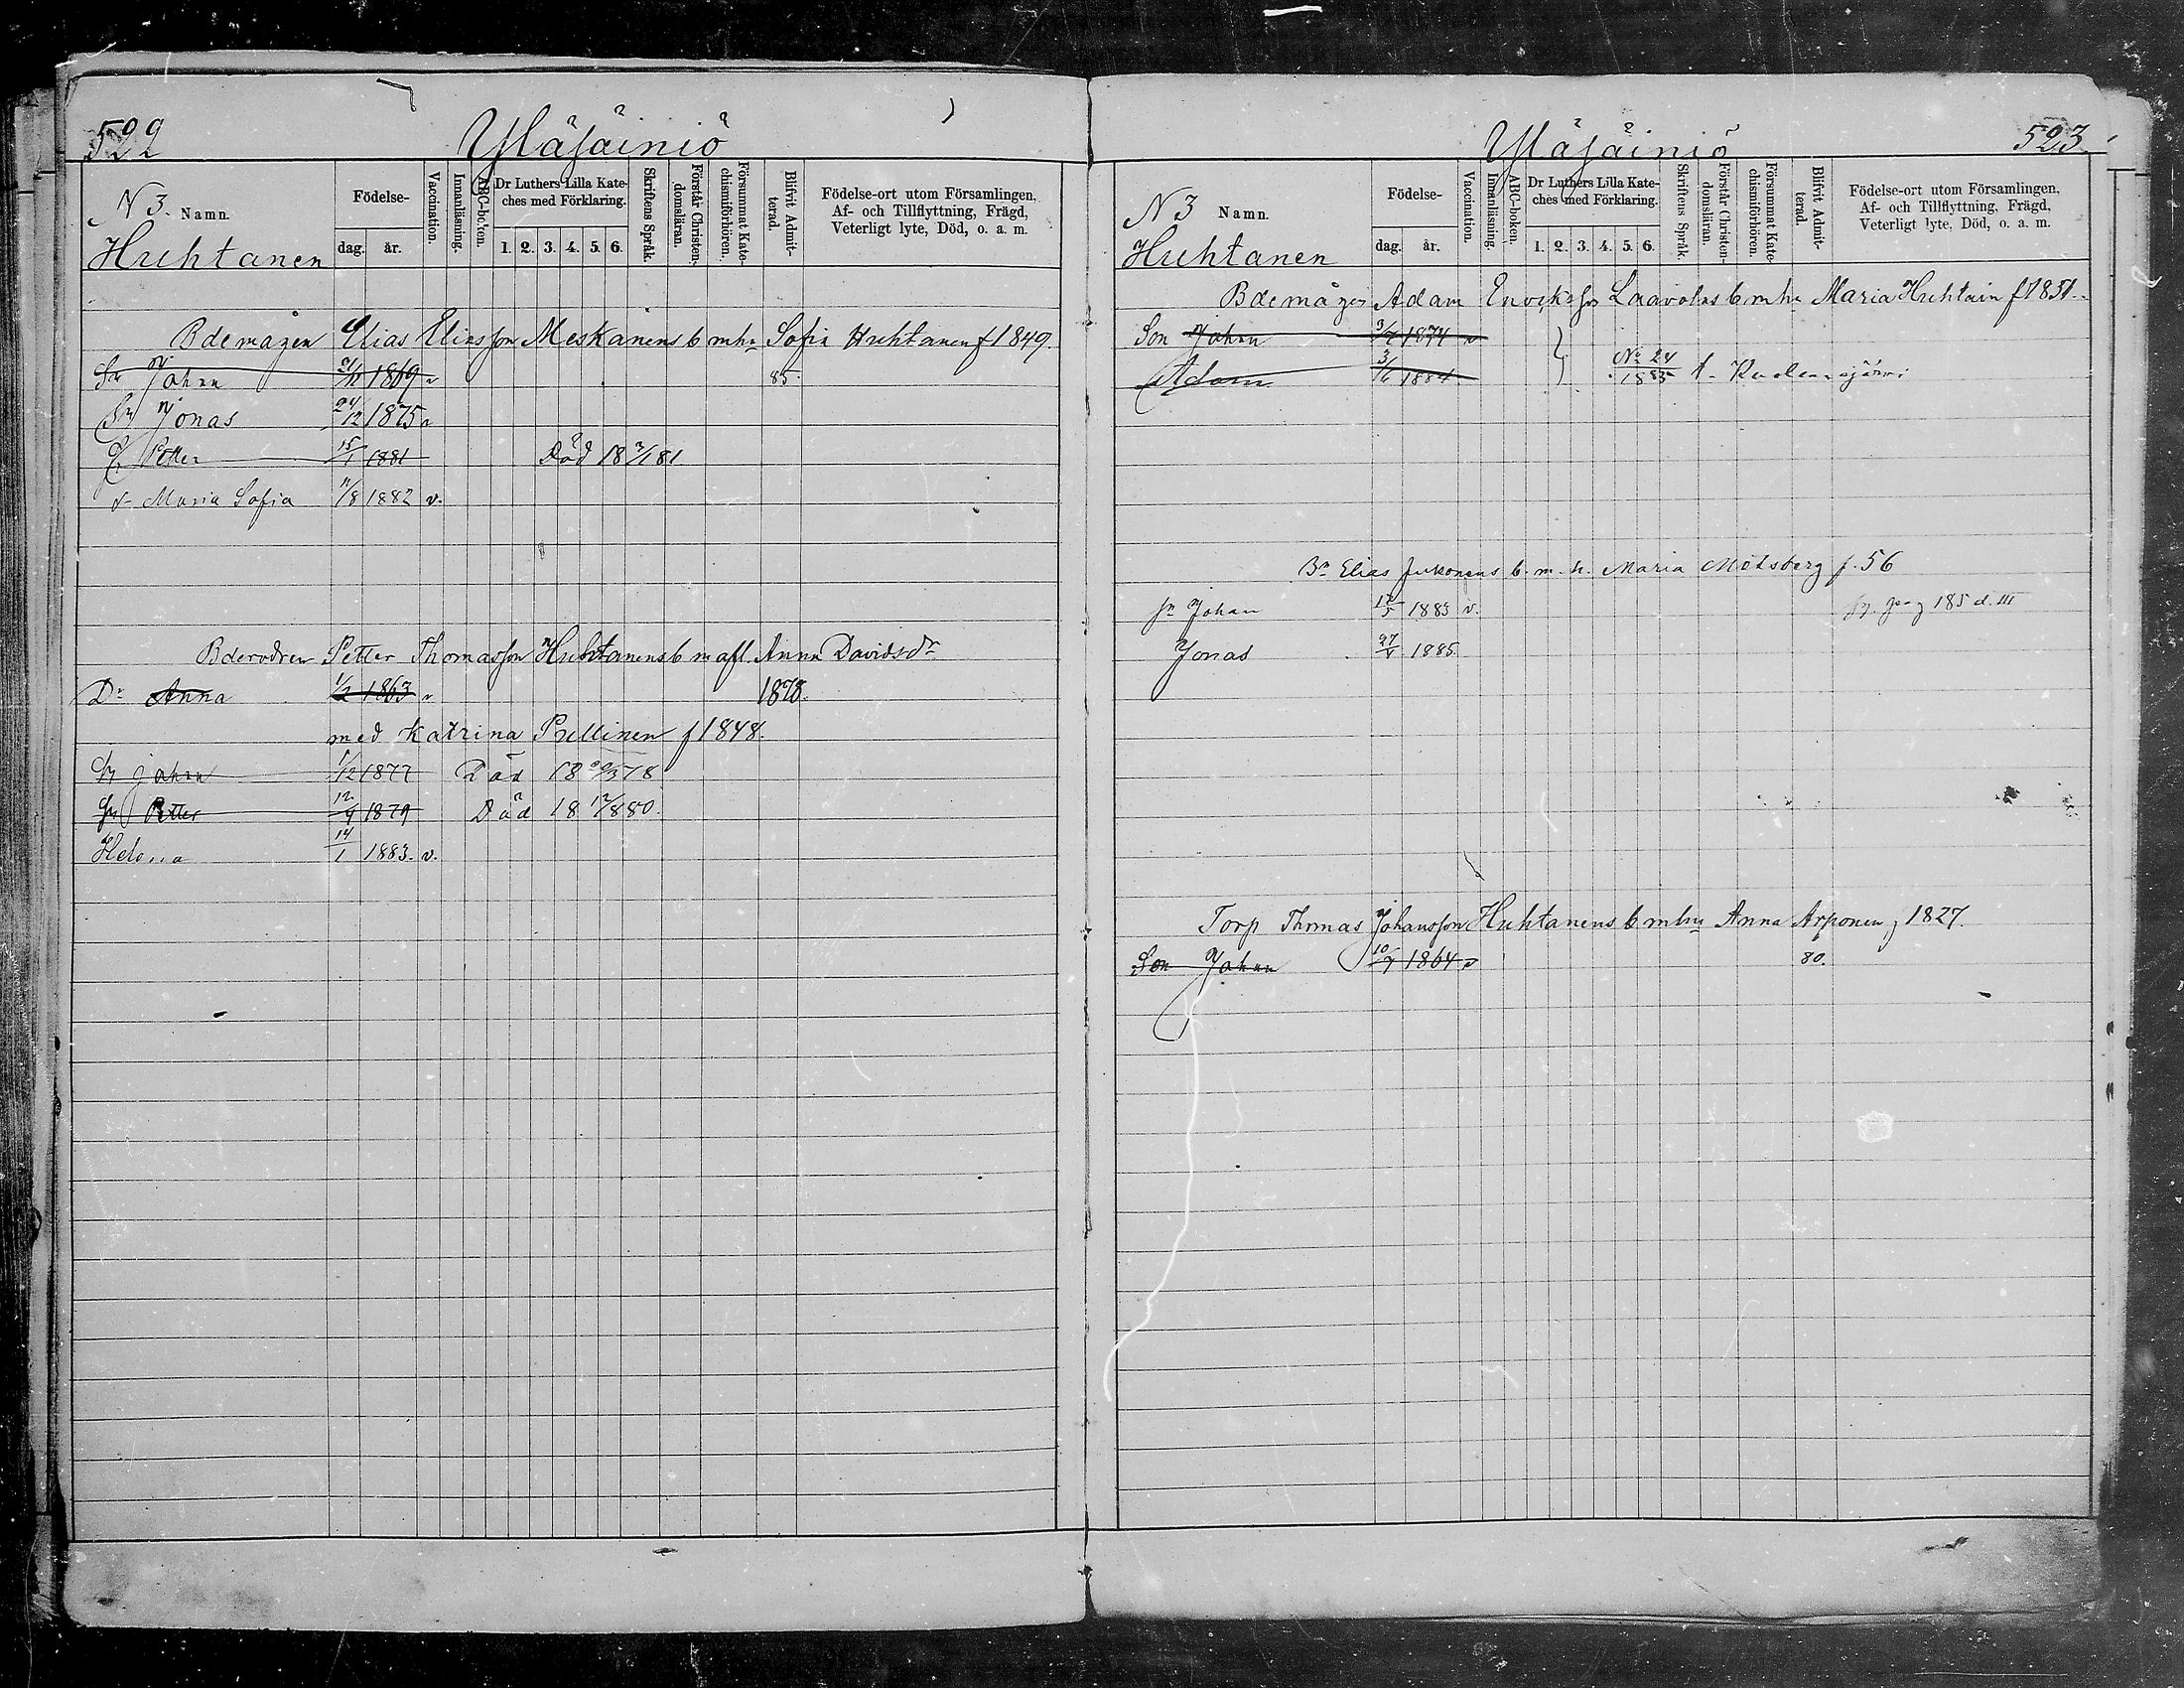 522 Yläjäiniö
N 3. Namn.
Huhtanen
Födelse-
dag. år.
Vaccination.
Innanläsning.
ABC-boken.
Dr Luthers Lilla Kate-
ches med Förklaring.
1. 2. 3. 4. 5. 6.
Skriftens Språk.
Förstår Christen-
domsläran.
Försummat Kate-
chismiförhören.
Blifvit Admit-
terad.
Födelse-ort utom Församlingen,
Af- och Tillflyttning, Frägd,
Veterligt lyte, Död, o. a. m.
Bdemågen Elias Eliasson Meskanens b mhu Sofia Huhtanen f 1849.
Sn Johan 1869 v 85.
Sn Jonas 24/12 1875 v
Sn Petter 15/1 1881 Död 18 3/1 81
dr Maria Sofia 11/8 1882 v.
Bdebrodren Petter Thomasson Huhtanens b m afl. Anna Davidsdr
Dr Anna 1/2 1863 v 1878.
med Katrina Pullinen f 1848.
Sn Johan 1/12 1877 Död 18 /3 78
Sn Petter 12/9 1879 Död 18 12/8 80.
Helena 14/1 1883. v.
Yläjäiniö 523.
N 3 Namn.
Huhtanen
Födelse-
dag. år.
Vaccination.
Innanläsning.
ABC-boken.
Dr Luthers Lilla Kate-
ches med Förklaring.
1. 2. 3. 4. 5. 6.
Skriftens Språk.
Förstår Christen-
domsläran.
Försummat Kate-
chismiförhören.
Blifvit Admit-
terad.
Födelse-ort utom Församlingen,
Af- och Tillflyttning, Frägd,
Veterligt lyte, Död, o. a. m.
Bdemågen Adam Laavolas b mhu Maria Huhtain f 1851.
Son Johan 3/7 1874 v
Adam 3/6 1884 No 24/1885 t. Kuolemajärvi
Bn Elias Jukonens b. m. h. Maria Mötsberg f. 56
sn Johan 17/5 1883 v. 185 d. III
Jonas 27/ 1885
Torp Thomas Johansson Huhtanens b mhu Anna Arponen f 1827.
Son Johan 10/7 1864 v 80.